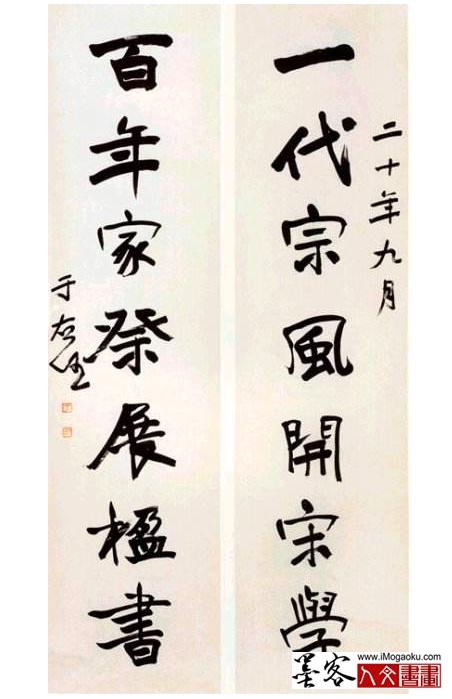 二十年九月
一代宗風開宋學
百年家祭展楹書
于右任
www.iMogaoku.com
墨客
人文書畫